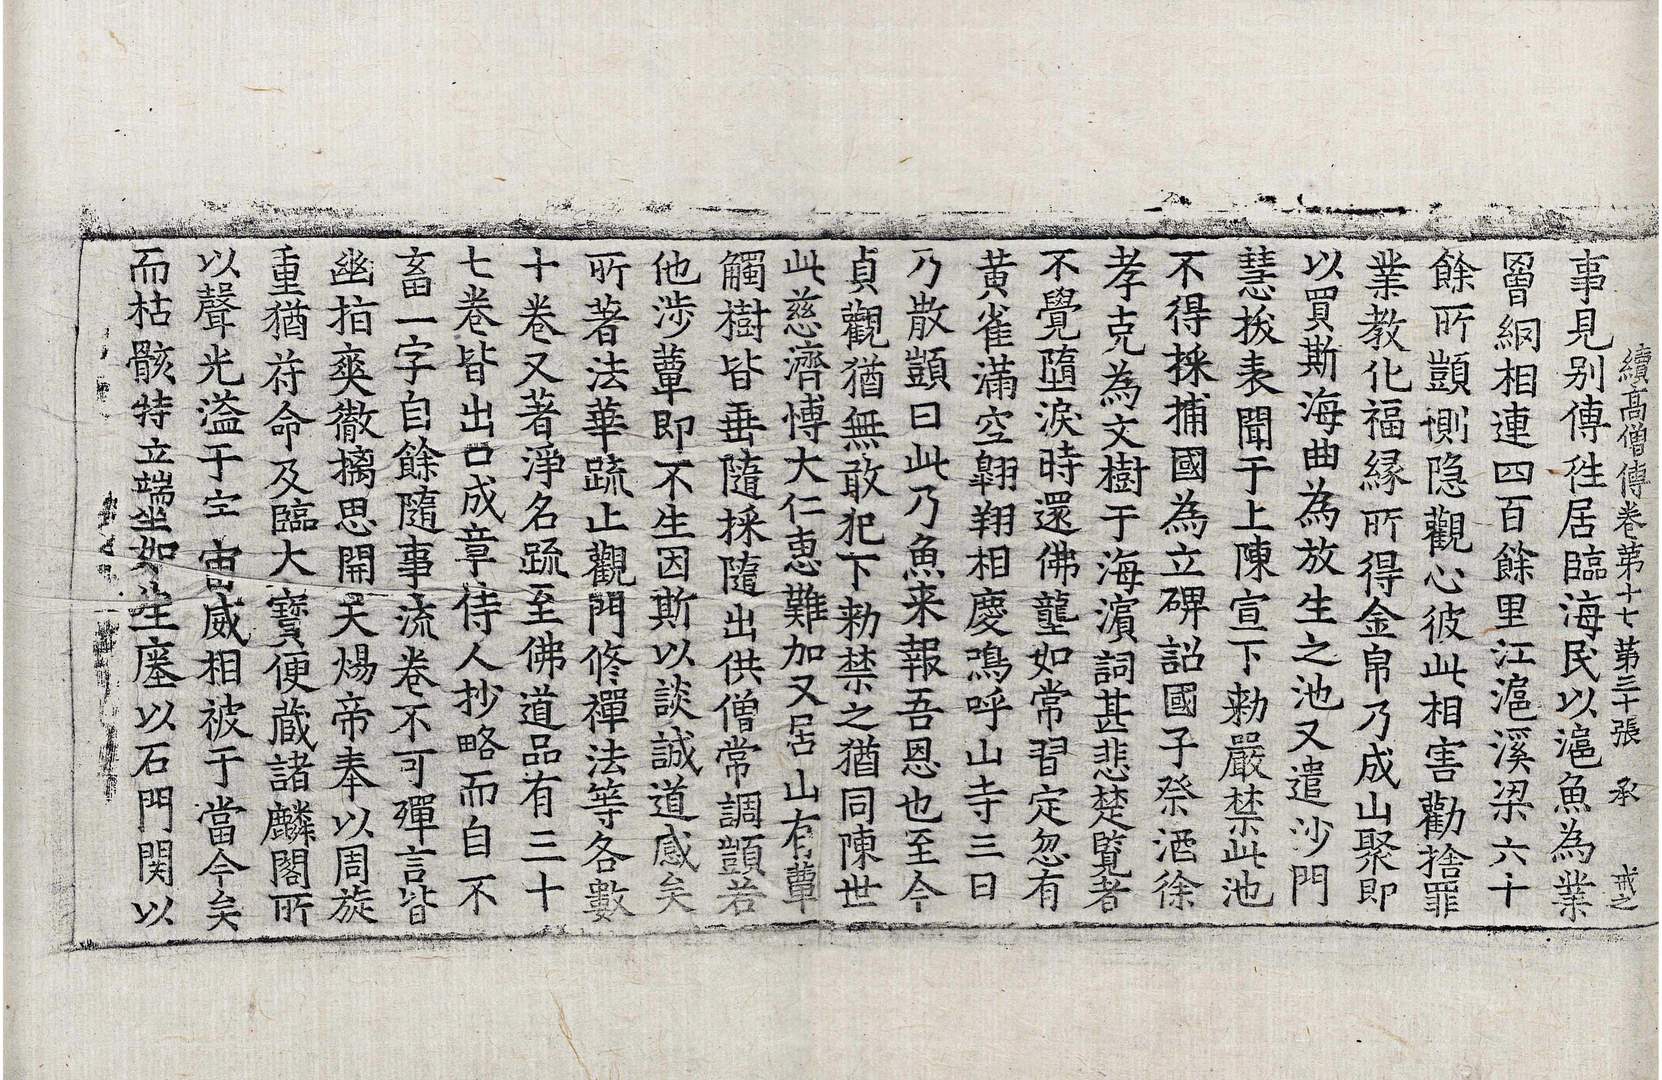 續高僧傳卷第十七 第三十張 承 戒之
事見别傳徃居臨海民以滬魚為業
罾網相連四百餘里江滬溪梁六十
餘所顗惻隐觀心彼此相害勸捨罪
業教化福縁所得金帛乃成山聚即
以買斯海曲為放生之池又遣沙門
慧拔表聞于上陳宣下勑嚴禁此池
不得採捕國為立碑詔國子祭酒徐
孝克為文樹于海濵詞甚悲楚覽者
不覺墮淚時還佛壟如常習定忽有
黄雀滿空翺翔相慶鳴呼山寺三日
乃散顗曰此乃魚来報吾恩也至今
貞觀猶無敢犯下勑禁之猶同陳世
此慈濟愽大仁惠難加又居山有蕈
觸樹皆垂隨採隨出供僧常調顗若
他涉蕈即不生因斯以談誠道感矣
所著法華䟽止觀門修禪法等各數
十卷又著淨名䟽至佛道品有三十
七卷皆出口成章侍人抄略而自不
畜一字自餘隨事流卷不可殫言皆
幽拍爽徹摛思開天煬帝奉以周旋
重猶苻命及臨大寶便蔵諸麟閣所
以聲光溢于宇宙威相被于當今矣
而枯骸特立端坐如生瘞以石門関以